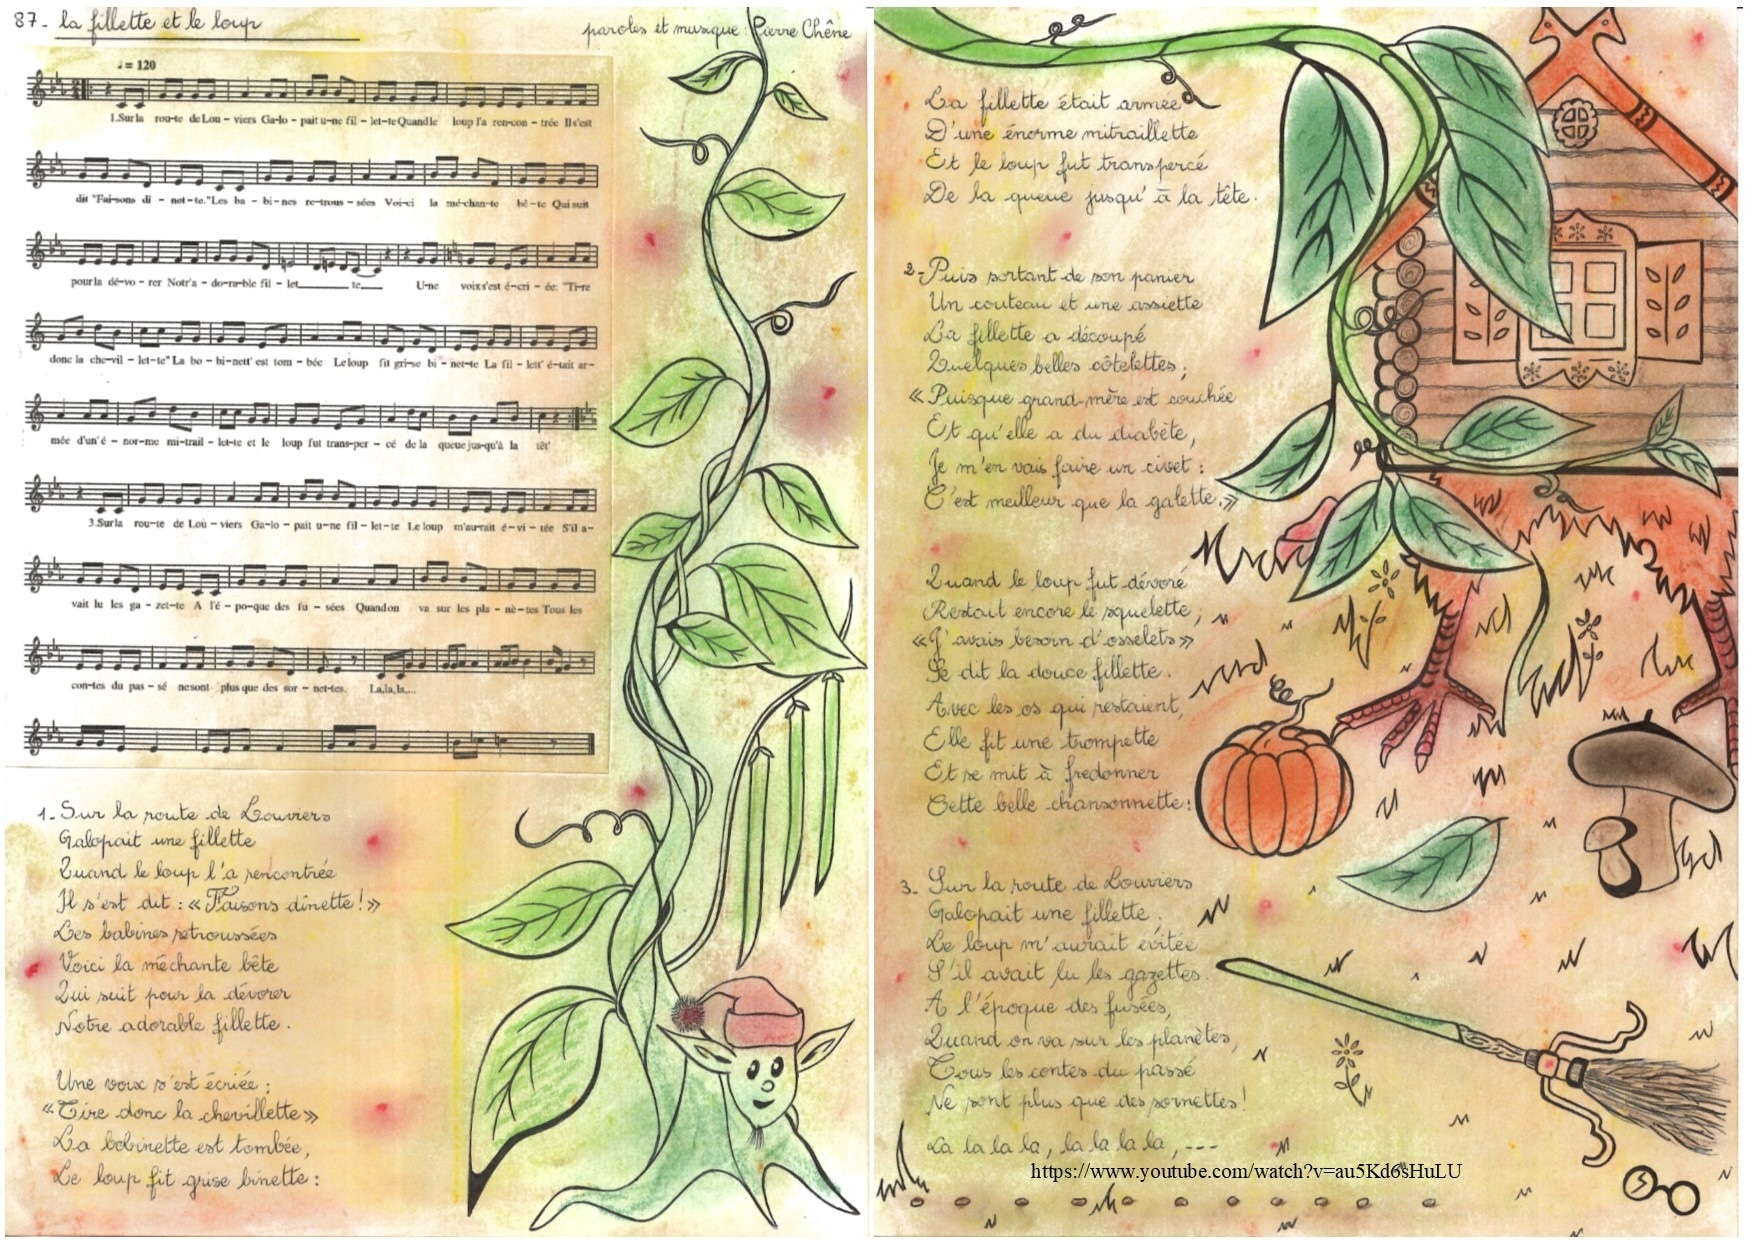 87- la fillette et le loup
paroles et musique : Pierre Chêne
♩ = 120
1.Sur la rou-te de Lou - viers Ga-lo - pait u-ne fil - let-te Quand le loup l'a ren-con - trée Il s'est
dit "Fai-sons dî - net-te."Les ba - bi-nes re-trous - sées Voi-ci la mé-chan-te bê-te Qui suit
pour la dé-vo - rer Notr'a - do-ra-ble fil - let____te__ U-ne voix s'est é-cri - ée: "Ti-re
donc la che-vil - let-te" La bo - bi-nett' est tom - bée Le loup fit gri-se bi - net-te La fil - lett' é-tait ar-
mée d'un'é - nor-me mi-trail - let-te et le loup fut trans-per - cé de la queue jus-qu'à la têt'
3.Sur la rou-te de Lou - viers Ga-lo - pait u-ne fil - let-te Le loup m'au-rait é-vi - tée S'il a-
vait lu les ga - zet-te A l'é - po-que des fu - sées Quand on va sur les pla - nè-tes Tous les
con-tes du pas - sé ne sont plus que des sor - net-tes. La,la,la,...
1- Sur la route de Louviers
Galopait une fillette
Quand le loup l'a rencontrée
Il s'est dit : «Faisons dînette!»
Les babines retroussées
Voici la méchante bête
Qui suit pour la dévorer
Notre adorable fillette.
Une voix s'est écriée :
«Tire donc la chevillette»
La bobinette est tombée,
Le loup fit grise binette :
La fillette était armée
D'une énorme mitraillette
Et le loup fut transpercé
De la queue jusqu'à la tête.
2- Puis sortant de son panier
Un couteau et une assiette
La fillette a découpé
Quelques belles côtelettes ;
«Puisque grand-mère est couchée
Et qu'elle a du diabète,
Je m'en vais faire un civet :
C'est meilleur que la galette.»
Quand le loup fut dévoré
Restait encore le squelette ;
«J'avais besoin d'osselets»
Se dit la douce fillette.
Avec les os qui restaient,
Elle fit une trompette
Et se mit à fredonner
Cette belle chansonnette :
3- Sur la route de Louviers
Galopait une fillette ;
Le loup m'aurait évitée
S'il avait lu les gazettes.
A l'époque des fusées,
Quand on va sur les planètes,
Tous les contes du passé
Ne sont plus que des sornettes!
La la la la, la la la la, ---
https://www.youtube.com/watch?v=au5Kd6sHuLU